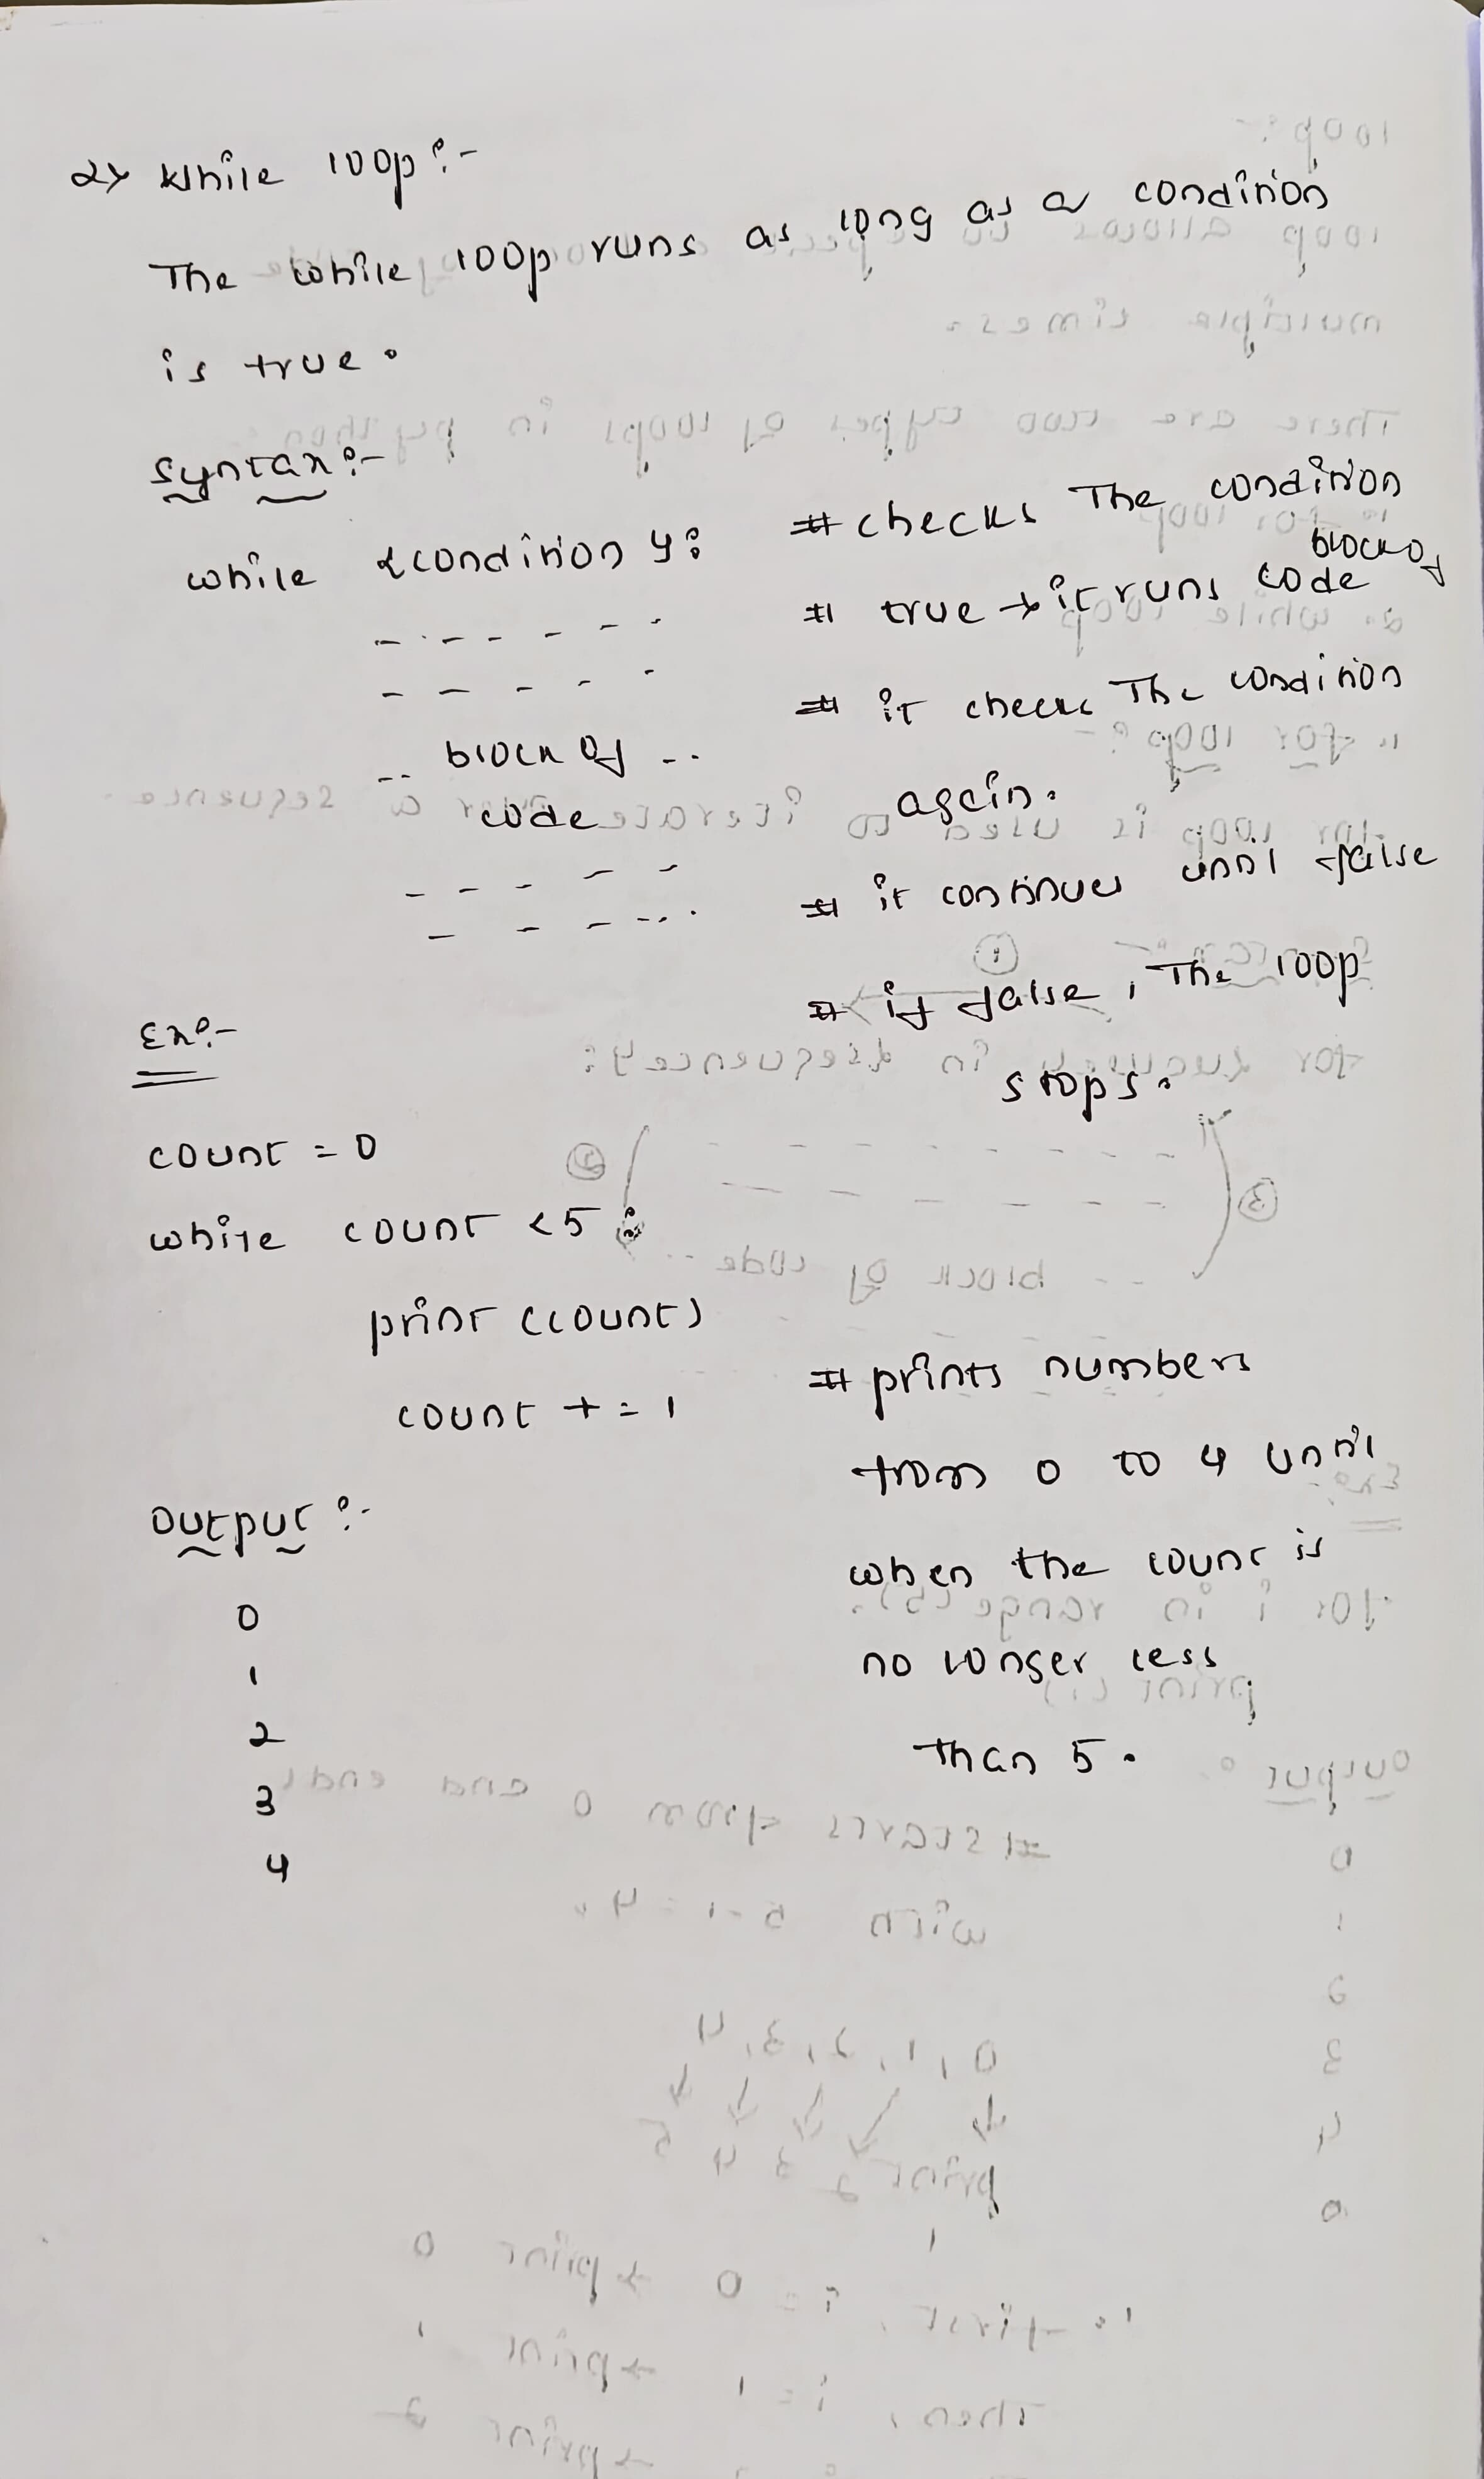 2> While loop :-
The while loop runs as long as a condition
is true.
Syntax :-
while {condition}: # checks The condition
# true → it runs block of code
# it checks The condition
-- block of --
code again.
# it continues until false
# if false, The loop
stops.
Ex :-
count = 0
while count < 5 :
print (count)
count += 1 # prints numbers
from 0 to 4 until
Output :-
when the count is
0
no longer less
1
2
than 5.
3
4